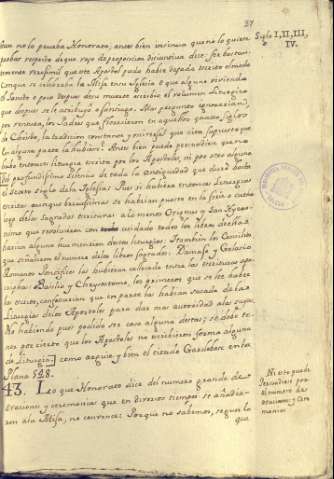 37
Siglo I, II, III,
IV.
no lo prueba Honorato, antes bien insinua que no lo quiere
probar respeto de que vajo de proposicion disiuntiva dice: ser bastan-
que este Apostol pudo haber dejado escrito el modo
con que se celebraba la Misa en su Iglesia o que alguno viviendo
el Santo o poco despues de su muerte escribió el volumen Liturgico
que despues se le atribuyó a Santiago. Mas pregunto
los Padres que florecieron en aquellos quatro siglos
la tradicion constante y universal que
en alguna parte la hubiera? Antes bien puede persuadirse que no
hubo entonces Liturgia escrita por los Apostoles, ni por otro alguno
del profundisimo silencio de toda la antiguedad que duró hasta
el sexto siglo de la Iglesia. Pues si hubieran entonces Liturgias
escritas aunque brevisimas se habrian puesto en la
logo de las Sagradas escrituras a lo menos Origenes y San Gero-
nimo que revolvieron con cuidado todos los libros de ellas
harian alguna vez mencion de estas liturgias: Tambien los Concilios
que señalaron el numero de los libros sagrados: Damaso y Gelasio
Romanos Pontifices las hubieran colocado entre las escrituras apo-
criphas: Basilio y Chrysostomo, los primeros que se les habia
escrito, confesarian que en parte las habian sacado de las
Liturgias de los Apostoles para dar mas autoridad a las suyas.
No habiendo pues podido ser cosa alguna de estas; se debe te-
ner por cierto que los Apostoles no escribieron forma alguna
de Liturgia: como arguie y bien el citado Grandcolas en la
Plana 528.
43. Lo que Honorato dice del numero grande de
oraciones y ceremonias que en diversos tiempos se añadie-
ron a la Misa, no convence: Porque no sabemos, segun lo
que
Ni esto puede
persuadirse por
el numero de
oraciones y Cere-
monias